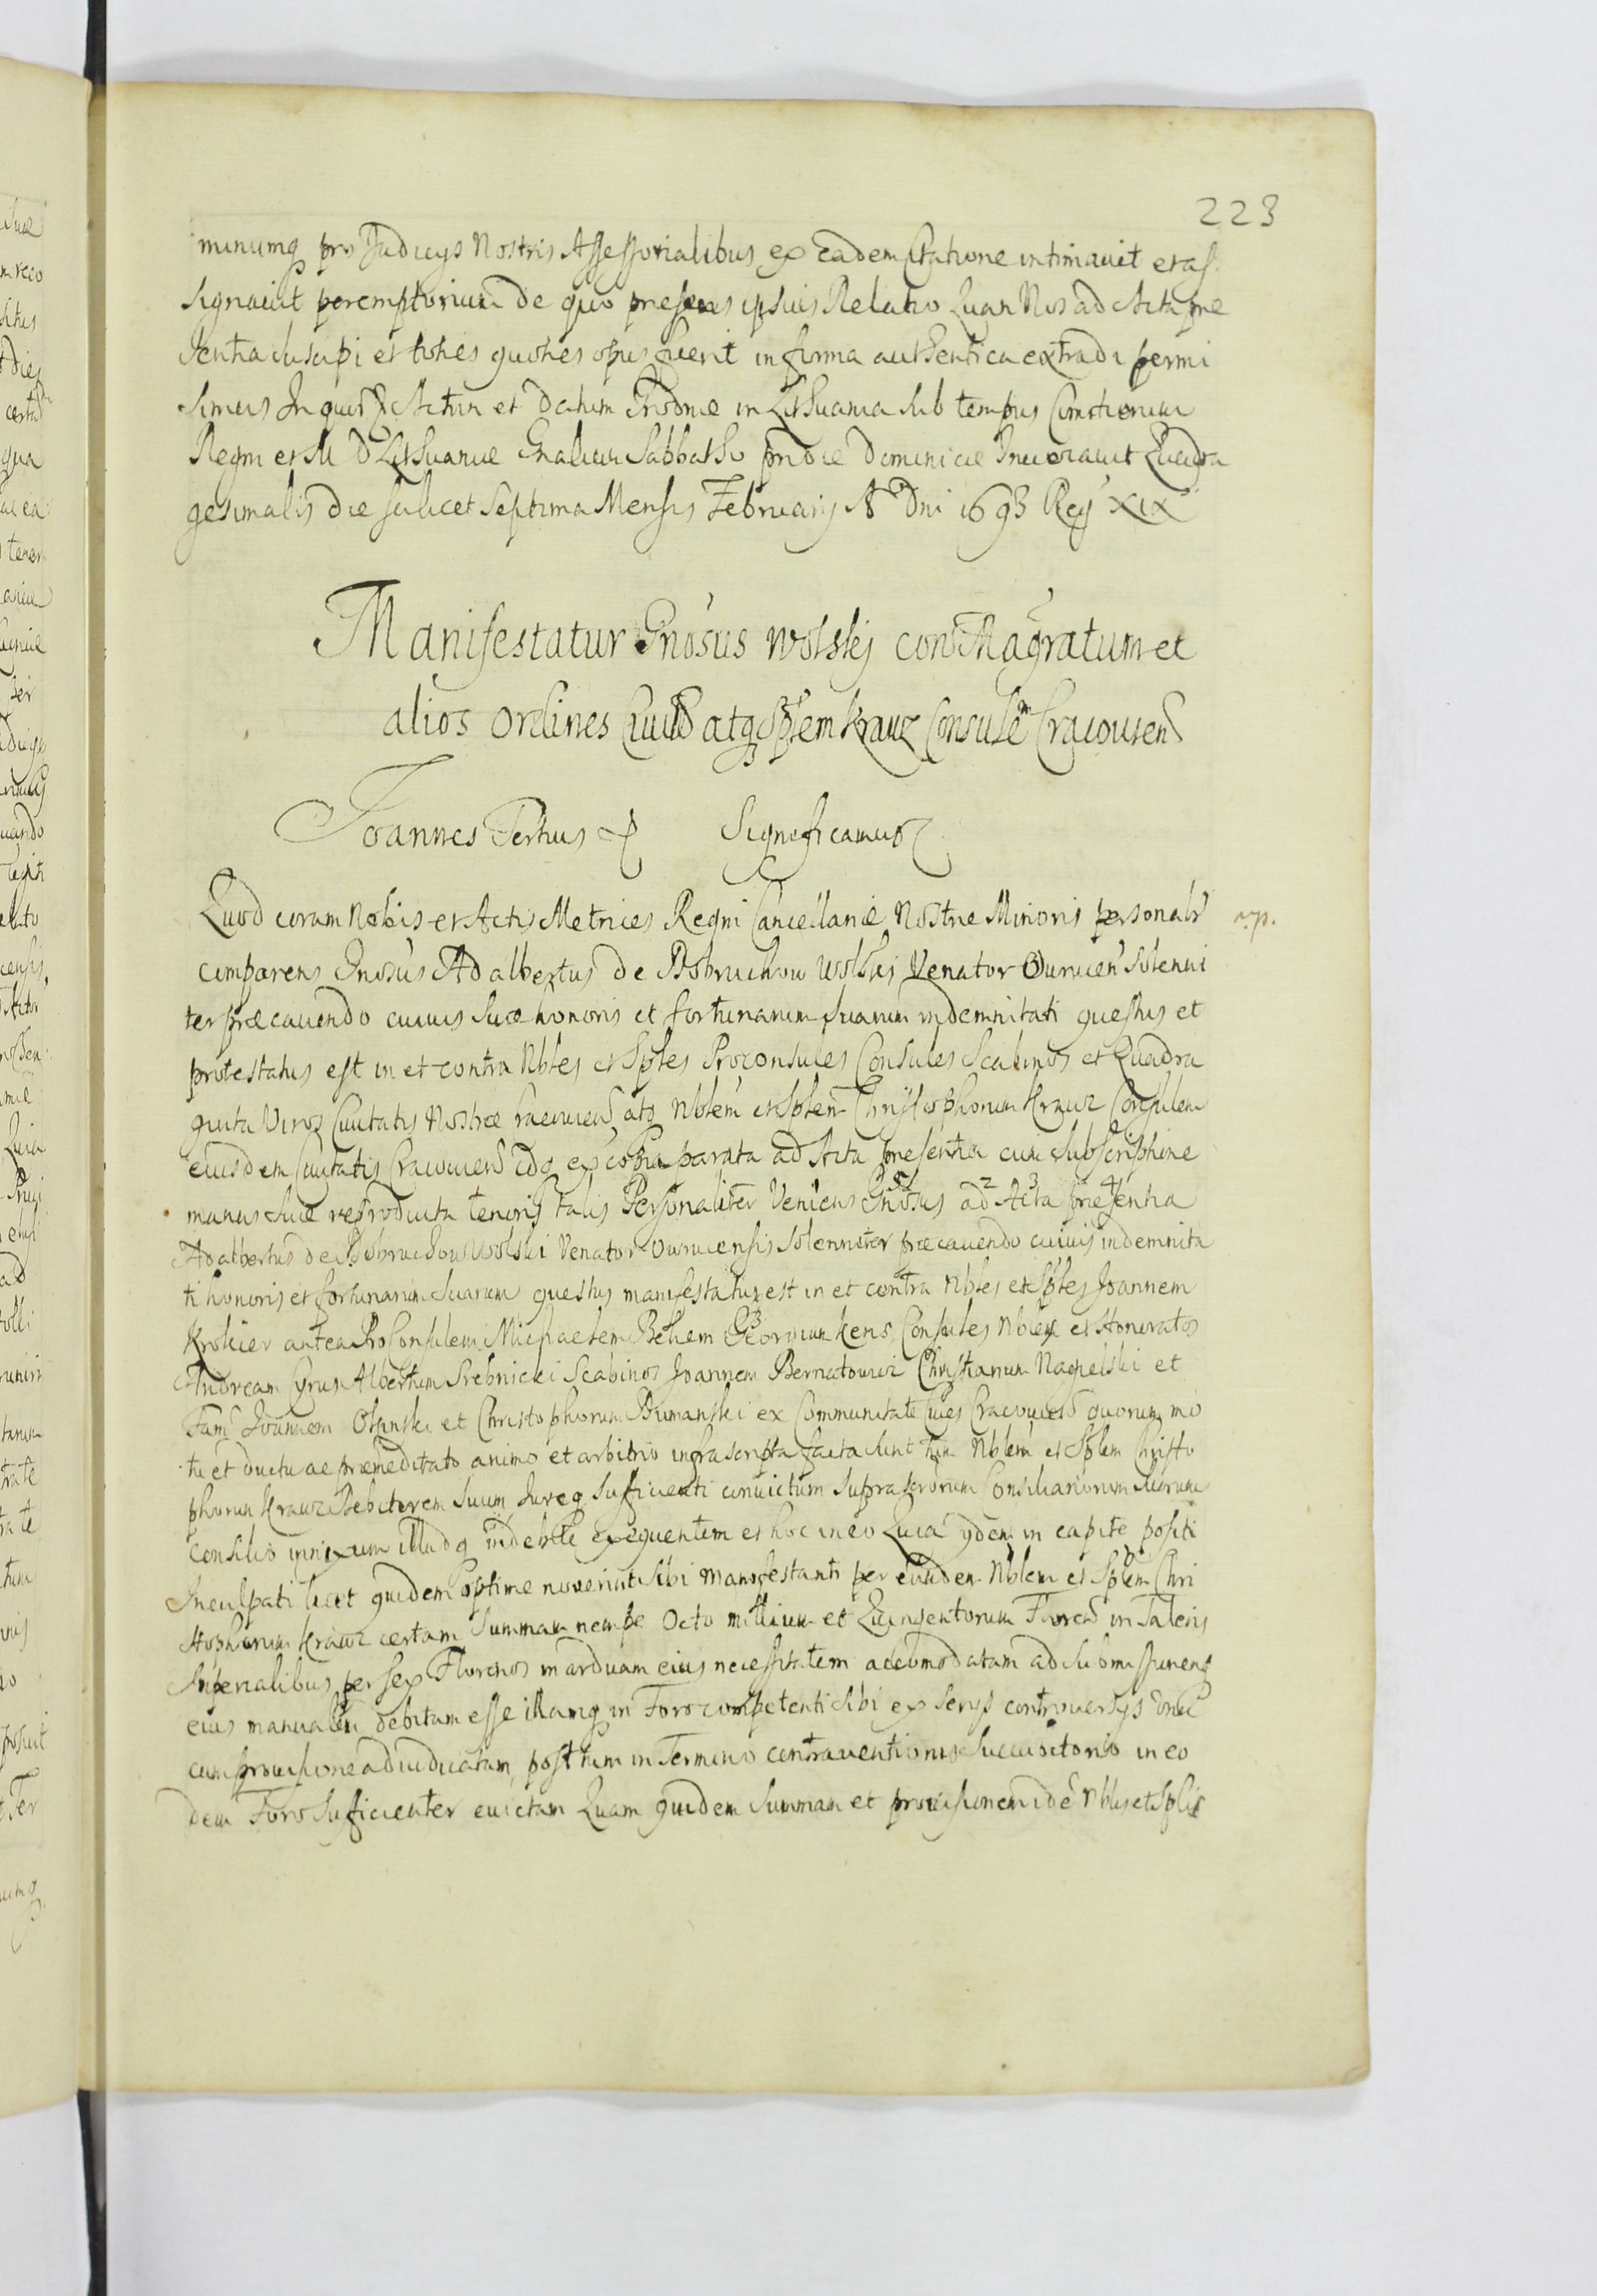 223
minumq pro Judicijs Nostris Assessorialibus ex eadem Citatione intimavit et as
signavit peremptorium de quo presens ipsius Relatio Quam Nos ad Acta pre
sentia suscipi et toties quoties opus fuerit in forma authentica extradi permi
simus In quor Actum et Datum Grodnæ in Lithuania sub tempus Comitiorum
Regni et M D Lithuaniæ Gnalium Sabbatho pridie Dominicæ Invocavit Quadra
gesimalis die scilicet septima Mensis Februarij A Dni 1693 Regni XIX
Manifestatur Gnosus Wolskj con Magratum et
alios Ordines Civit atq Splem Krauz Consulem Cracovien
Joannes Tertius Significamus
Quod coram Nobis et Actis Metrices Regni Cancellariæ Nostræ Minoris personalr
comparens Gnosus Adalbertus de Wolski Venator Owrucen solenni
ter præcavendo cuivis suæ honoris et fortunarum suarum indemnitati questus et
protestatus est in et contra Nbles et Sples Proconsules Consules Scabinos et Quadra
ginta Viros Civitatis Nostræ Cracovien atq Nblem et Splem Christophorum Krauz Consulem
eiusdem Civitatis Cracovien idq ex copia parata ad Acta presentia cum subscriptione
manus suæ reproducta tenoris talis Personaliter Veniens Gnosus ad Acta præsentia
Adalbertus de Wolski Venator Owrucensis solenniter præcavendo cuivis indemnita
ti honoris et fortunarum suarum questus manifestatus est in et contra Nbles et Sples Joannem
Krokier antea ProConsulem Michaelem Behem Georgium Kens Consules Nbles et Honoratos
Andream Cyrus Albertum Srebnicki Scabinos Joannem Bernatowicz Christianum Nagielski et
Fam Joannem et Christophorum ex Communitate Cives Cracovien quorum mo
tu et ductu ac præmeditato animo et arbitrio infrascripta facta sunt tum Nblem et Splem Christo
phorum Krauz Debitorem suum Jureq sufficienti convictum suprascrorum Consiliariorum suorum
consilio innixum illudq indebite exequentem et hoc in eo Quia ijdem in capite positi
Inculpati licet quidem optime noverint sibi Manifestanti per eundem Nblem et Splem Chri
stophorum Krauz certam summam nempe Octo millium et Quingentorum Floren in Taleris
Imperialibus per sex Florenos in arduam eius necessitatem accommodatam ad submissionem
eius manualem debitam esse illamq in Foro competenti sibi ex serijs controversijs
cum provisione adiudicatam, post tum in Termino contraventionis Succussitorio in eo
dem Foro sufficienter evictam Quam quidem summam et provisionem idem Nblis et Splis